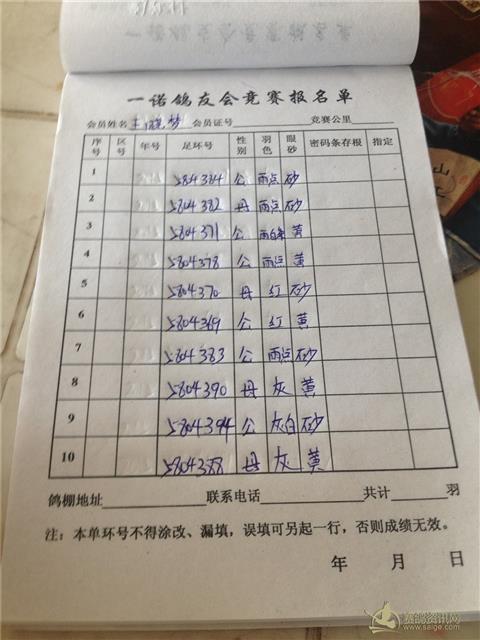 一诺鸽友会竞赛报名单
会员姓名 王晓梦 会员证号 竞赛公里
序号 区号 年号 足环号 性别 羽色 眼砂 密码条存根 指定
1 5804384 公 雨点 砂
2 5804382 母 雨点 砂
3 5804371 公 雨白条 黄
4 5804378 公 雨点 黄
5 5804370 母 红 砂
6 5804369 公 红 黄
7 5804383 公 雨点 砂
8 5804390 母 灰 黄
9 5804394 公 灰白 砂
10 5804388 母 灰 黄
鸽棚地址 联系电话 共计 羽
注：本单环号不得涂改、漏填，误填可另起一行，否则成绩无效。
年 月 日
赛鸽资讯网
www.saige.com